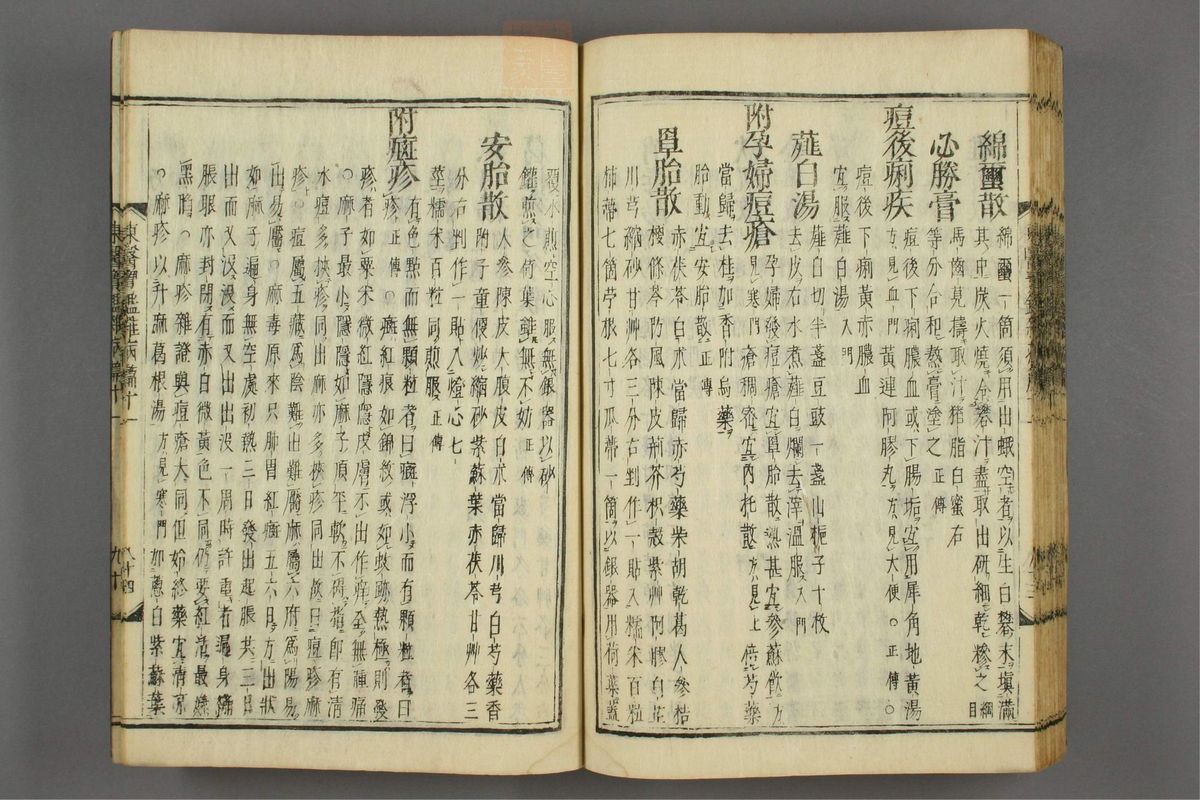 綿蠒散 綿蠒一箇須用出蛾空者以生白礬末塡滿
其中炭火燒令礬汁盡取出硏細乾糝之 綱目
必勝膏 馬齒莧擣取汁猪脂白蜜右
等分合和熬膏塗之 正傳
痘後痢疾 痘後下痢膿血或下腸垢宜用犀角地黃湯
方見血門 黃連阿膠丸 方見大便 ○ 正傳 ○
痘後下痢黃赤膿血
宜服薤白湯 入門
薤白湯 薤白切半盞豆豉一盞山梔子十枚
去皮右水煮薤白爛去滓溫服 入門
附孕婦痘瘡 孕婦發痘瘡宜罩胎散熱甚宜參蘇飮 方
見寒門 瘡稠密宜內托散 方見上 倍芍藥
當歸去桂加香附烏藥
胎動宜安胎散 正傳
罩胎散 赤茯苓白朮當歸赤芍藥柴胡乾葛人參桔
梗條芩防風陳皮荊芥枳殼紫艸阿膠白芷
川芎縮砂甘艸各三分右剉作一貼入糯米百粒
柿蒂七箇苧根七寸瓜蒂一箇以銀器用荷葉蓋
覆水煎空心服無銀器以砂
鑵煎之荷葉雖無不妨 正傳
安胎散 人參陳皮大腹皮白朮當歸川芎白芍藥香
附子童便炒縮砂紫蘇葉赤茯苓甘艸各三
分右剉作一貼入燈心七
莖糯米百粒同煎服 正傳
附癍疹 有色點而無顆粒者曰癍浮小而有顆粒者曰
疹 正傳 ○ 癍紅痕如錦紋或如蚊跡熱極則發
疹者如粟米微紅隱隱皮膚不出作痒全無腫痛
○ 麻子最小隱隱如麻子頂平軟不碍指卽有淸
水痘多挾疹同出麻亦多挾疹同出故曰痘疹麻
疹 ○ 痘屬五藏爲陰難出難靨麻屬六府爲陽易
出易靨 ○ 麻毒原來只肺胃紅癍五六日方出狀
如麻子遍身無空處初熱三日發出起脹共三日
出而又沒沒而又出出沒一周時許重者遍身膨
脹眼亦封閉有赤白微黃色不同仍要紅活最嫌
黑陷 ○ 麻疹雜證與痘瘡大同但始終藥宜淸凉
○ 麻疹以升麻葛根湯 方見寒門 加蔥白紫蘇葉
東醫寶鑑雜病篇十一